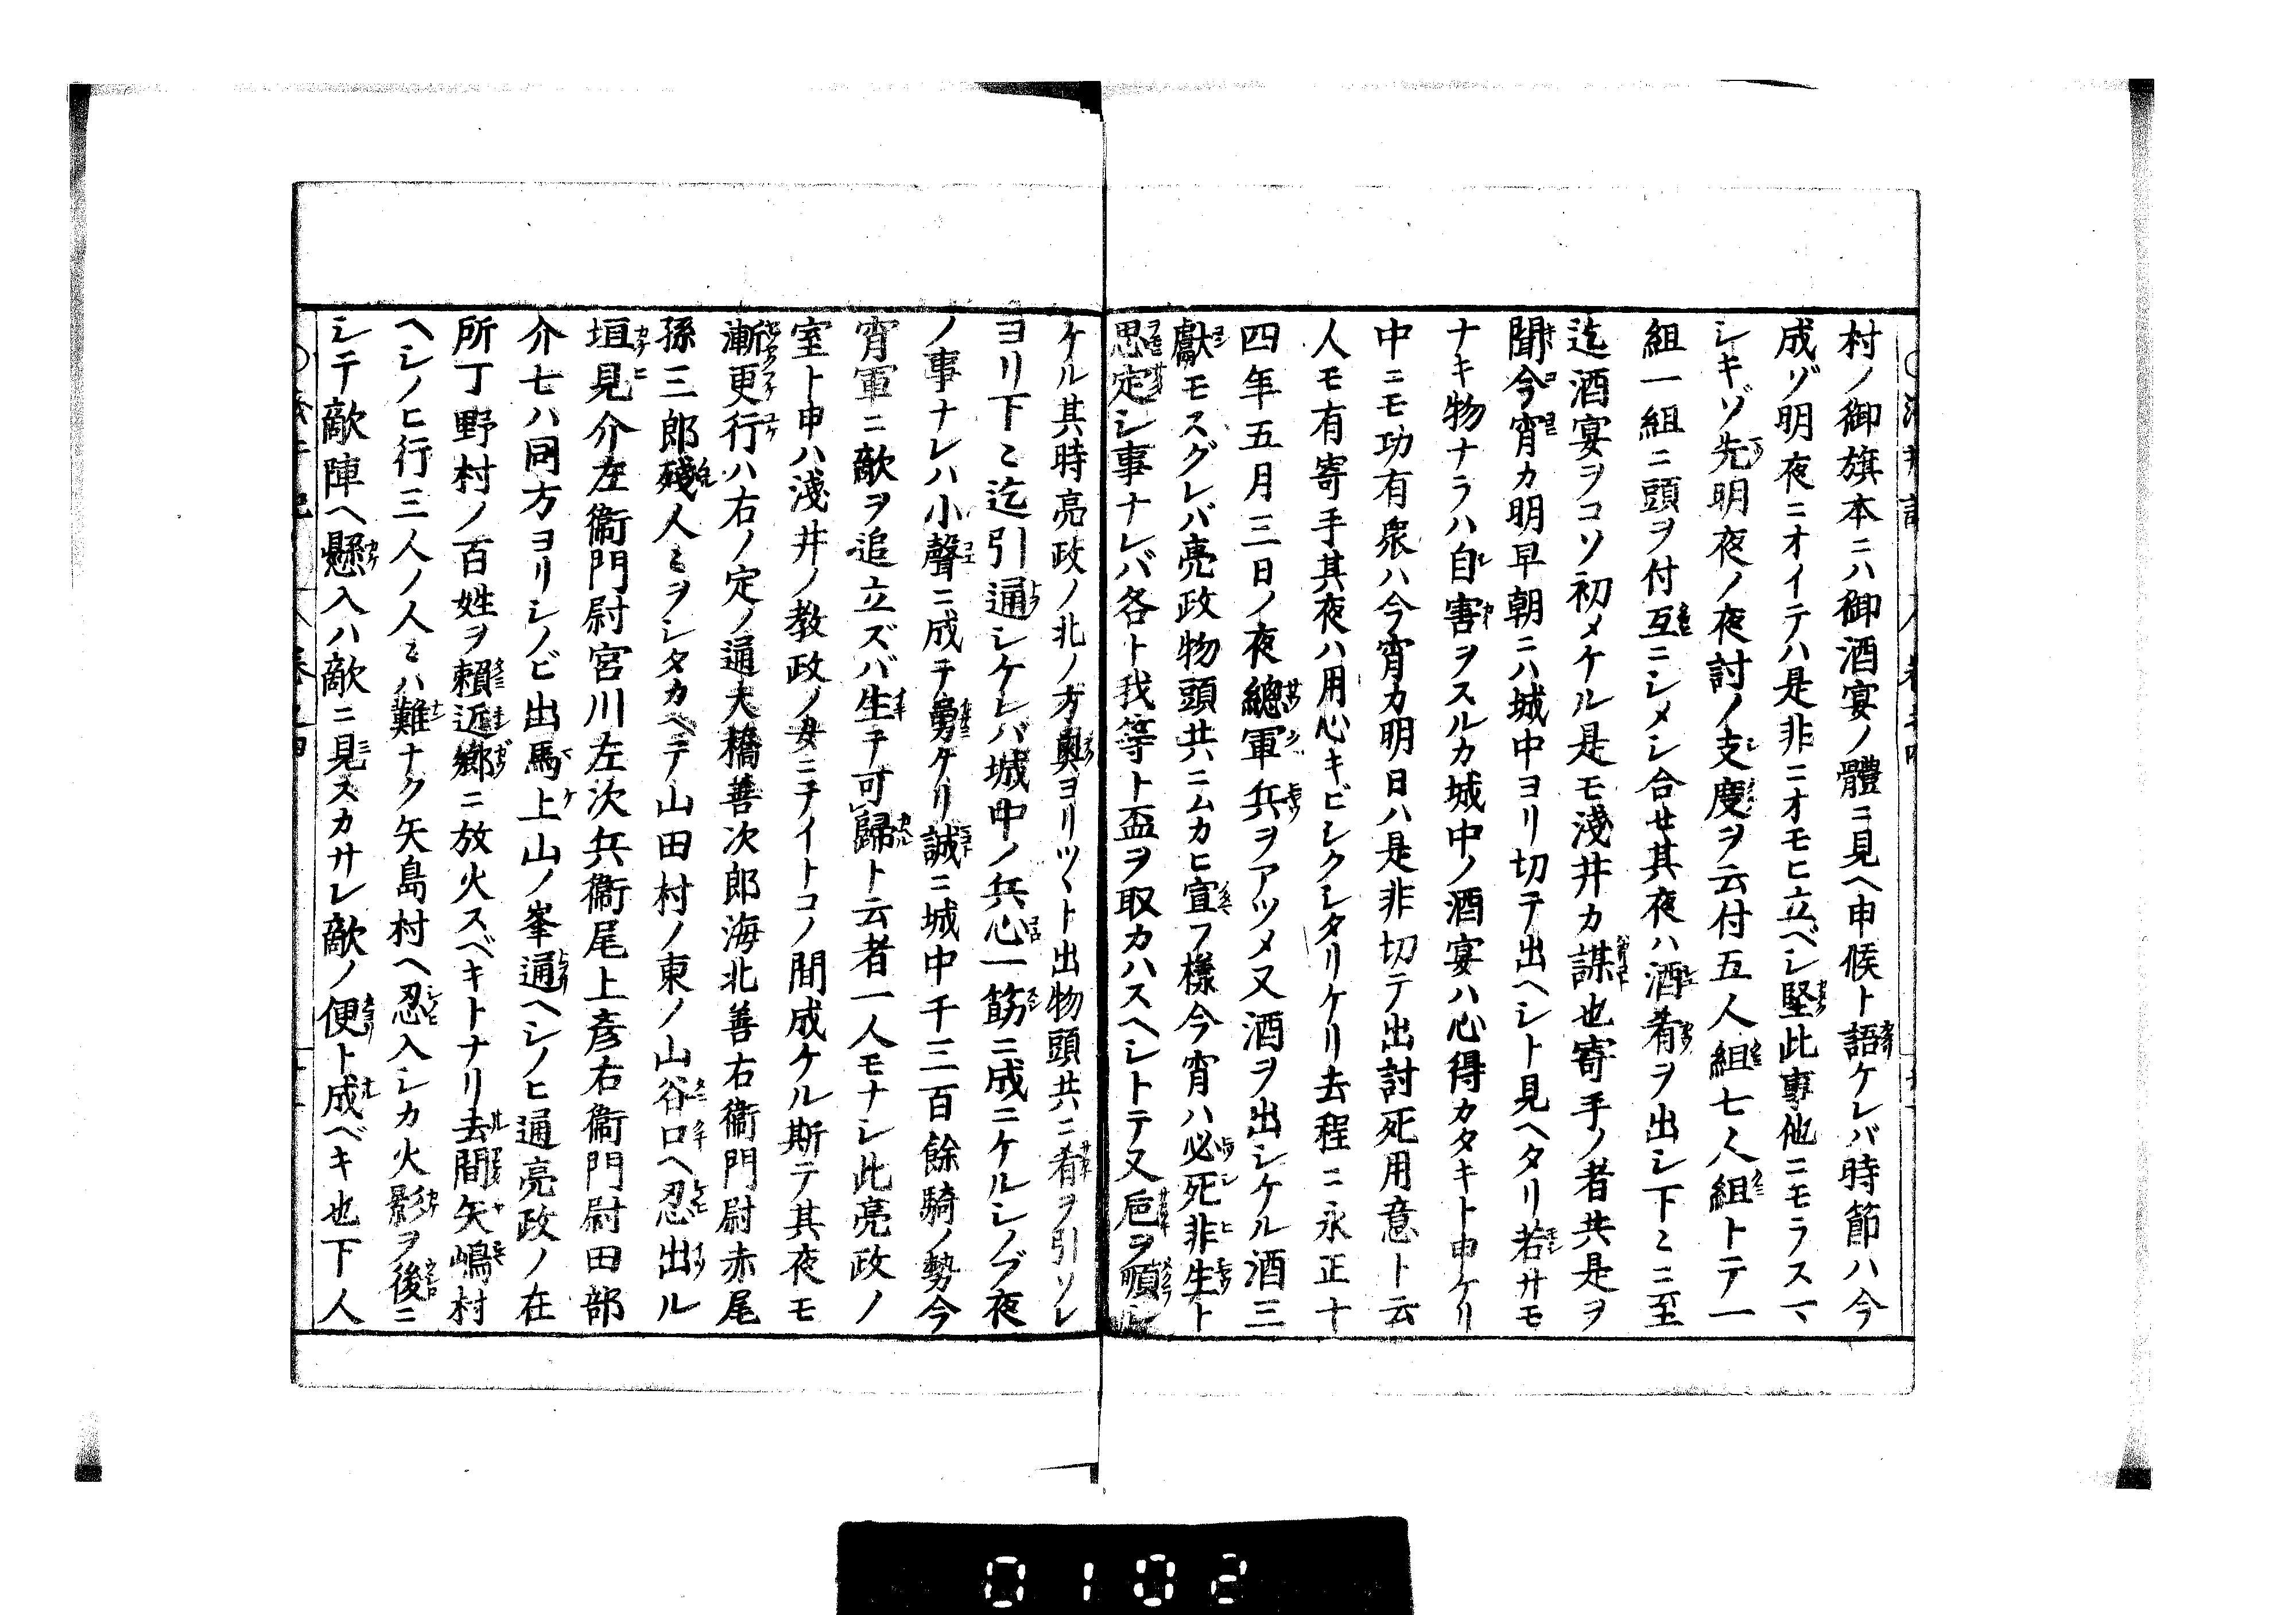 村ノ御旗本ニハ御酒宴ノ體ニ見ヘ申候ト語ケレバ時節ハ今
成ゾ明夜ニオイテハ是非ニオモヒ立ベシ堅此事他ニモラスマ
シキゾ先明夜ノ夜討ノ支度ヲ云付五人組七人組トテ一
組一組ニ頭ヲ付互ニシメシ合セ其夜ハ酒肴ヲ出シ下〻ニ至
迄酒宴ヲコソ初メケル是モ淺井カ謀也寄手ノ者共是ヲ
聞今宵カ明早朝ニハ城中ヨリ切テ出ヘシト見ヘタリ若サモ
ナキ物ナラハ自害ヲスルカ城中ノ酒宴ハ心得カタキト申ケリ
中ニモ功有衆ハ今宵カ明日ハ是非切テ出討死用意ト云
人モ有寄手其夜ハ用心キビシクシタリケリ去程ニ永正十
四年五月三日ノ夜總軍兵ヲアツメ又酒ヲ出シケル酒三
獻モスグレバ亮政物頭共ニムカヒ宣フ樣今宵ハ必死非生ト
思定シ事ナレバ各ト我等ト盃ヲ取カハスヘシトテ又巵ヲ順シ
ケル其時亮政ノ北ノ方奥ヨリツ〱ト出物頭共ニ肴ヲ引ソレ
ヨリ下〻迄引通シケレバ城中ノ兵心一筋ニ成ニケルシノブ夜
ノ事ナレハ小聲ニ成テ勇ケリ誠ニ城中千三百餘騎ノ勢今
宵軍ニ敵ヲ追立ズバ生テ可歸ト云者一人モナシ此亮政ノ
室ト申ハ淺井ノ教政ノ女ニテイトコノ間成ケル斯テ其夜モ
漸更行ハ右ノ定ノ通大橋善次郎海北善右衞門尉赤尾
孫三郎殘人〻ヲシタカヘテ山田村ノ東ノ山谷口ヘ忍出ル
垣見介左衞門尉宮川左次兵衞尾上彦右衞門尉田部
介七ハ同方ヨリシノビ出馬上山ノ峯通ヘシノヒ通亮政ノ在
所丁野村ノ百姓ヲ頼近郷ニ放火スベキトナリ去間矢嶋村
ヘシノヒ行三人ノ人〻ハ難ナク矢島村ヘ忍入シカ火影ヲ後ニ
シテ敵陣ヘ懸入ハ敵ニ見スカサレ敵ノ便ト成ベキ也下人
0102